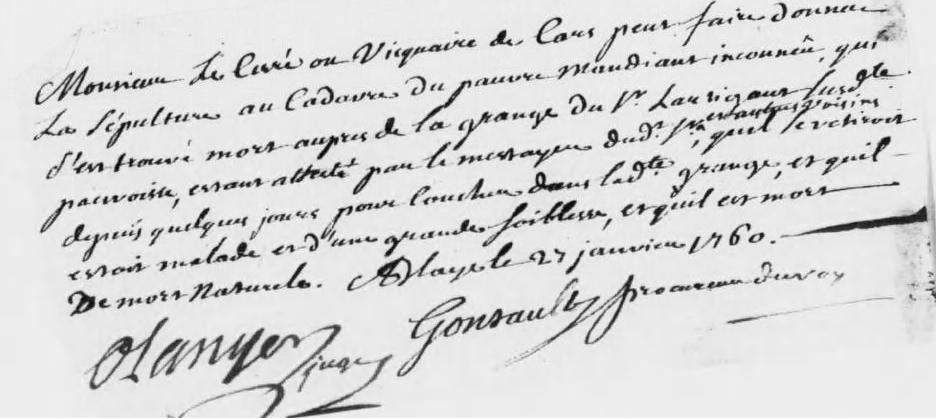 Monsieur Le Curé ou Vicquaire de Cars peut faire donner
La Sépulture au Cadavre du pauvre mandiant inconneü, qui
s'est trouvé mort aupres de la grange du Sr. Larrigaut susdte
parroisse, estant attesté par le mettayer dudt. Sr. et autres voisins
, quil se retiroit
depuis quelques jours pour coucher dans ladte. grange, et quil
estoit malade et d'une grande foiblesse, et quil est mort
De mort naturele. A Blaye le 27 janvier 1760.
Olanyer juge Gonsault procureur du roy